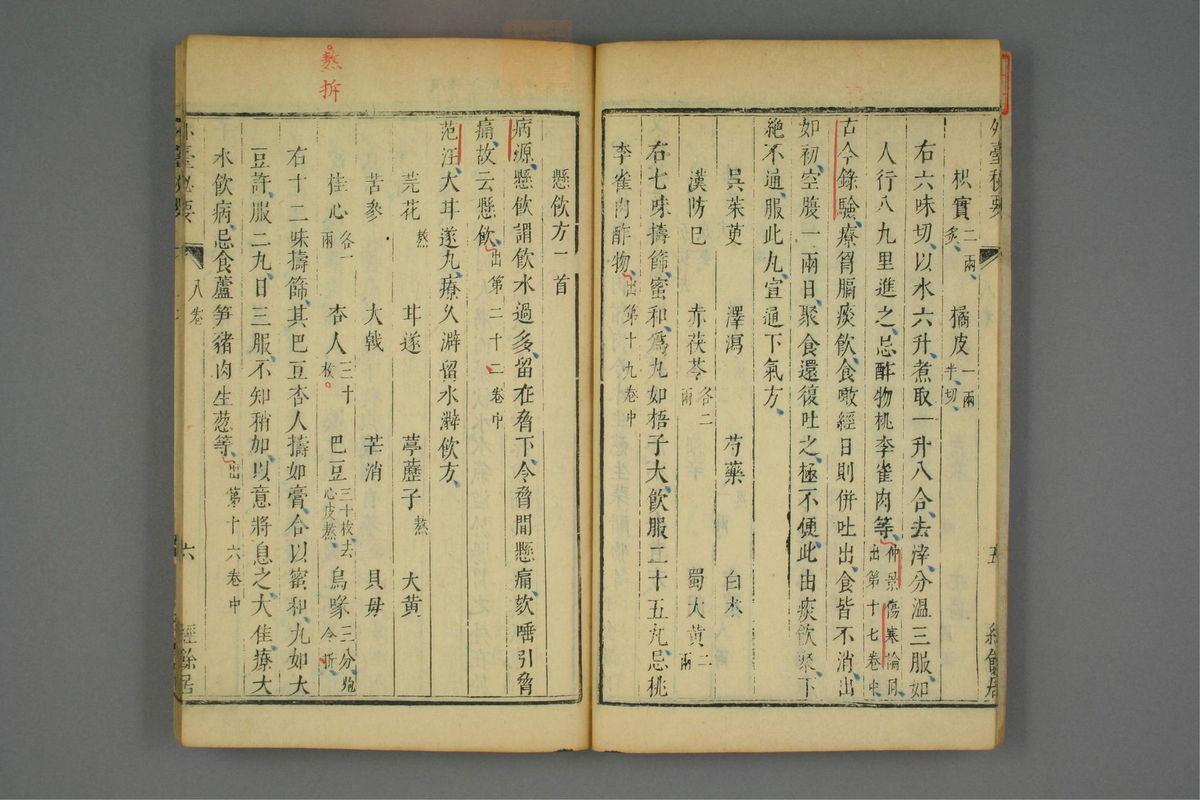 外臺秘要
枳實二兩炙 橘皮一兩半切
右六味切以水六升煮取一升八合去滓分溫三服如
人行八九里進之忌酢物桃李雀肉等仲景傷寒論同出第十七卷中
古今錄驗療胷膈痰飲食噉經日則併吐出食皆不消出
如初空腹一兩日聚食還復吐之極不便此由痰飲聚下
絶不通服此丸宣通下氣方
吳茱萸 澤瀉 芍藥 白朮
漢防巳 赤茯苓各二兩 蜀大黃二兩
右七味擣篩蜜和爲丸如梧子大飲服二十五丸忌桃
李雀肉酢物出第十九卷中
懸飲方一首
病源懸飲謂飲水過多留在脅下令脅間懸痛欬唾引脅
痛故云懸飲出第二十二卷中
范汪大耳遂丸療久澼留水澼飲方
芫花熬 耳遂 葶藶子熬 大黃
苦參 大戟 芒消 貝母
桂心各一兩 杏人三十枚 巴豆三十枚去心皮熬 烏喙三分炮令坼
右十二味擣篩其巴豆杏人擣如膏合以蜜和丸如大
豆許服二丸日三服不知稍加以意將息之大佳療大
水飲病忌食蘆笋豬肉生葱等出第十六卷中
八卷
六
經餘居
熬
拆